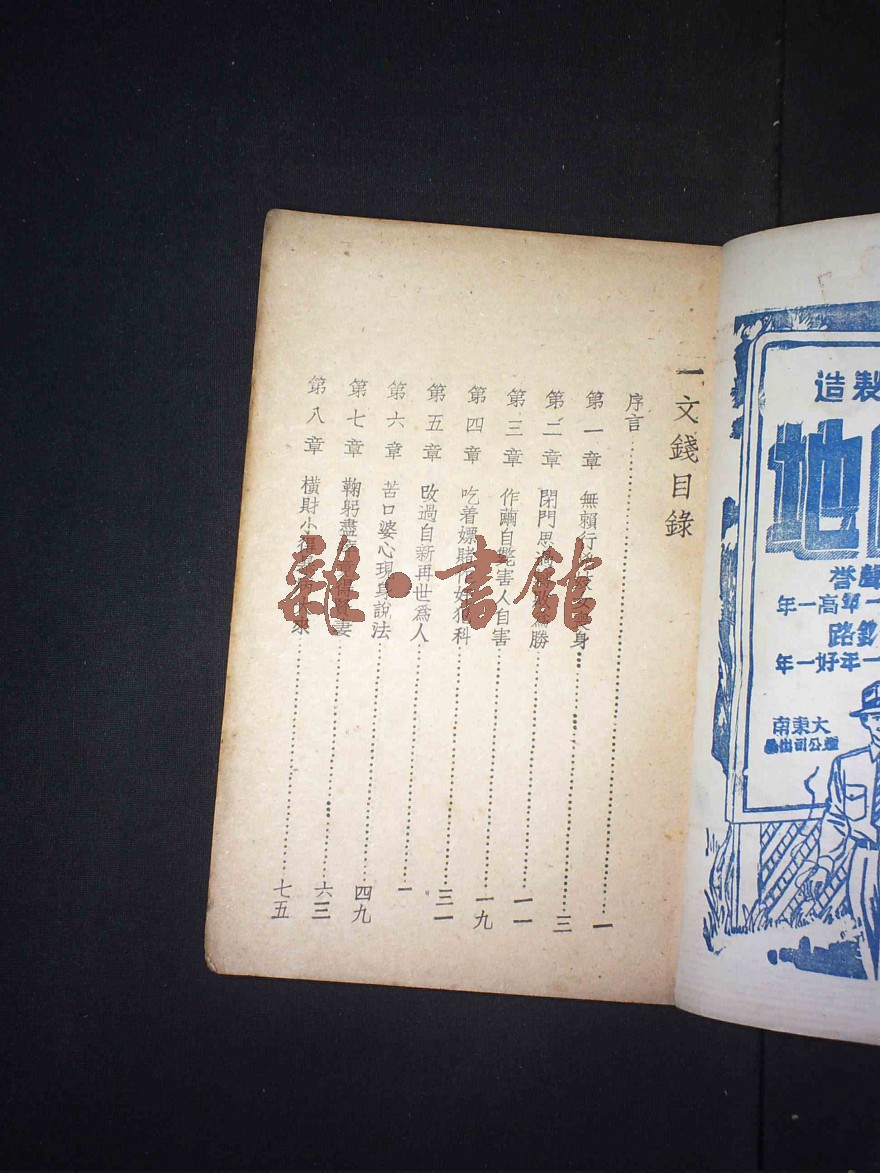 一文錢目錄
序言……一
第一章 無賴行 身……三
第二章 閉門思 勝……一一
第三章 作繭自斃害人自害……一九
第四章 吃着嫖賭 科……三一
第五章 改過自新再世爲人……一
第六章 苦口婆心現身說法……四九
第七章 鞠躬盡 妻……六三
第八章 橫財小 來……七五
雜·書館
製造
地
譽
年一高一
路
年一好年一
大東南
公司